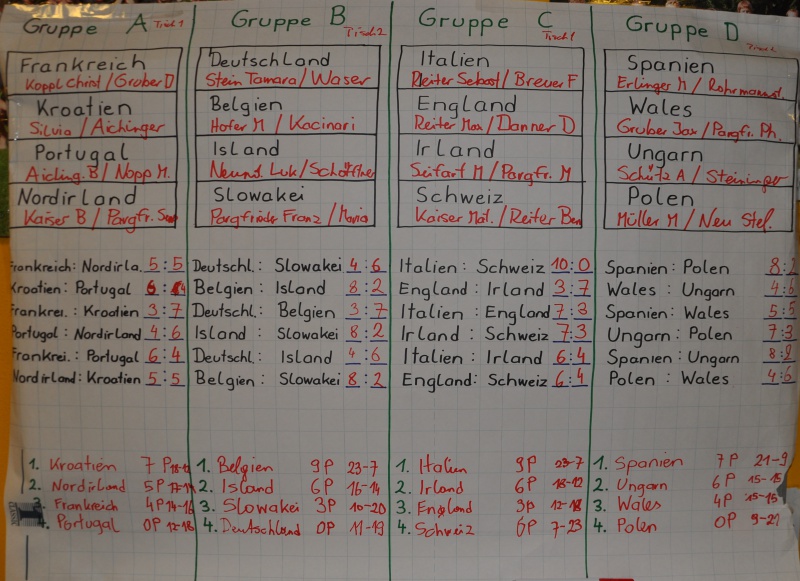 Gruppe A Tisch 1
Frankreich
Koppl Christ / Gruber D
Kroatien
Silvia / Aichinger
Portugal
Aiching. B / Nopp M.
Nordirland
Kaiser B / Pargfr.
Frankreich: Nordirla. 5:5
Kroatien: Portugal 6:4
Frankrei.: Kroatien 3:7
Portugal: Nordirland 4:6
Frankrei.: Portugal 6:4
Nordirland: Kroatien 5:5
1. Kroatien 7P 18-12
2. Nordirland 5P
3. Frankreich 4P 14-16
4. Portugal 0P 12-18
Gruppe B Tisch 2
Deutschland
Stein Tamara / Waser
Belgien
Hofer M / Kacinari
Island
Neund. Luk / Schöffner
Slowakei
Pargfrieder Franz / Mario
Deutschl.: Slowakei 4:6
Belgien: Island 8:2
Deutschl.: Belgien 3:7
Island: Slowakei 8:2
Deutschl.: Island 4:6
Belgien: Slowakei 8:2
1. Belgien 9P 23-7
2. Island 6P 16-14
3. Slowakei 3P 10-20
4. Deutschland 0P 11-19
Gruppe C Tisch 1
Italien
Reiter Sebast / Breuer F
England
Reiter Max / Danner D
Irland
Seifart M / Pargfr. M
Schweiz
Kaiser Mat. / Reiter Ben
Italien: Schweiz 10:0
England: Irland 3:7
Italien: England 7:3
Irland: Schweiz 7:3
Italien: Irland 6:4
England: Schweiz 6:4
1. Italien 9P 23-7
2. Irland 6P 18-12
3. England 3P 12-18
4. Schweiz 0P 7-23
Gruppe D
Spanien
Erlinger M / Rohrmannst.
Wales
Gruber Jax / Pargfr. Ph.
Ungarn
Schütz A / Steininger
Polen
Müller M / Neu Stef.
Spanien: Polen 8:2
Wales: Ungarn 4:6
Spanien: Wales 5:5
Ungarn: Polen 7:3
Spanien: Ungarn 8:2
Polen: Wales 4:6
1. Spanien 7P 21-9
2. Ungarn 6P 15-15
3. Wales 4P 15-15
4. Polen 0P 9-21